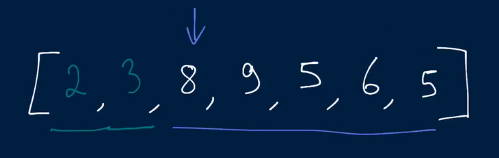 [2, 3, 8, 9, 5, 6, 5]